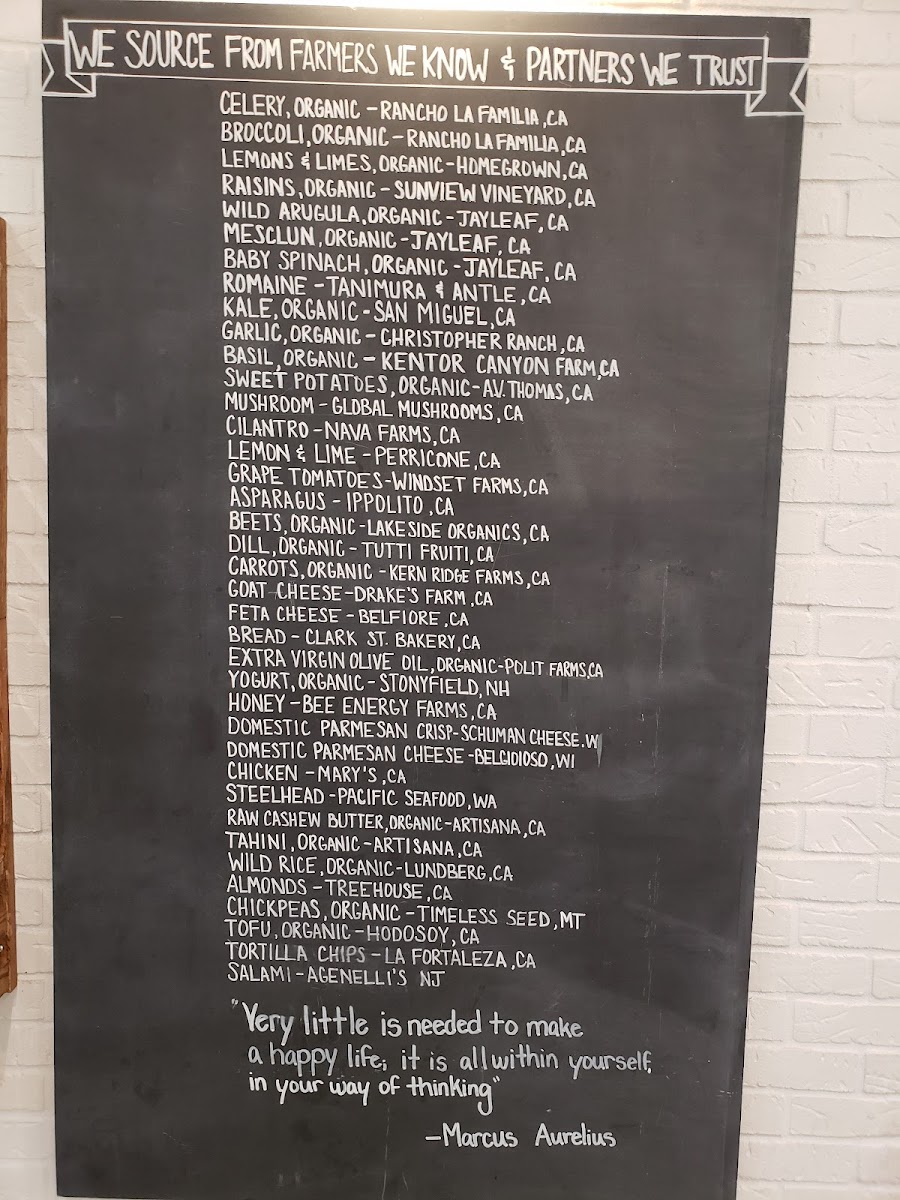 WE SOURCE FROM FARMERS WE KNOW & PARTNERS WE TRUST
CELERY, ORGANIC - RANCHO LA FAMILIA, CA
BROCCOLI, ORGANIC - RANCHO LA FAMILIA, CA
LEMONS & LIMES, ORGANIC - HOMEGROWN, CA
RAISINS, ORGANIC - SUNVIEW VINEYARD, CA
WILD ARUGULA, ORGANIC - JAYLEAF, CA
MESCLUN, ORGANIC - JAYLEAF, CA
BABY SPINACH, ORGANIC - JAYLEAF, CA
ROMAINE - TANIMURA & ANTLE, CA
KALE, ORGANIC - SAN MIGUEL, CA
GARLIC, ORGANIC - CHRISTOPHER RANCH, CA
BASIL, ORGANIC - KENTOR CANYON FARM, CA
SWEET POTATOES, ORGANIC - A.V. THOMAS, CA
MUSHROOM - GLOBAL MUSHROOMS, CA
CILANTRO - NAVA FARMS, CA
LEMON & LIME - PERRICONE, CA
GRAPE TOMATOES - WINDSET FARMS, CA
ASPARAGUS - IPPOLITO, CA
BEETS, ORGANIC - LAKESIDE ORGANICS, CA
DILL, ORGANIC - TUTTI FRUITI, CA
CARROTS, ORGANIC - KERN RIDGE FARMS, CA
GOAT CHEESE - DRAKE'S FARM, CA
FETA CHEESE - BELFIORE, CA
BREAD - CLARK ST. BAKERY, CA
EXTRA VIRGIN OLIVE OIL, ORGANIC - POLIT FARMS, CA
YOGURT, ORGANIC - STONYFIELD, NH
HONEY - BEE ENERGY FARMS, CA
DOMESTIC PARMESAN CRISP - SCHUMAN CHEESE. WI
DOMESTIC PARMESAN CHEESE - BELGIOIOSO, WI
CHICKEN - MARY'S, CA
STEELHEAD - PACIFIC SEAFOOD, WA
RAW CASHEW BUTTER, ORGANIC - ARTISANA, CA
TAHINI, ORGANIC - ARTISANA, CA
WILD RICE, ORGANIC - LUNDBERG, CA
ALMONDS - TREEHOUSE, CA
CHICKPEAS, ORGANIC - TIMELESS SEED, MT
TOFU, ORGANIC - HODOSOY, CA
TORTILLA CHIPS - LA FORTALEZA, CA
SALAMI - AGENELLI'S NJ
"Very little is needed to make
a happy life; it is all within yourself,
in your way of thinking"
-Marcus Aurelius